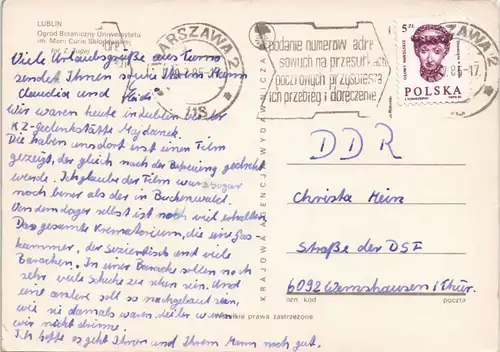 LUBLIN
Ogród Botaniczny Uniwersytetu
im. Marii Curie Skłodowskiej
fot. Z. Żugaj
Viele Urlaubsgrüße aus
senden Ihnen sowie Ihr Mann
Claudia und Heidi
Wir waren heute in Lublin in der
KZ-Gedenkstätte Majdanek.
Die haben uns dort erst einen Film
gezeigt, der gleich nach der Befreiung gedreht
wurde. Ich glaube der Film war sogar
noch besser als der in Buchenwald.
Von dem Lager selbst ist noch viel erhalten
Das gesamte Krematorium, die eine Gas
kammer, der Seziertisch und viele
Baracken. In einer Baracke sollen noch
sehr viele Schuhe zu sehen sein. Und
eine andere soll so nachgebaut sein,
wie sie damals waren. Leider waren
wir nicht drinne.
Ich hoffe es geht Ihnen und Ihrem Mann noch gut.
KRAJOWA AGENCJA WYDAWNICZA
WARSZAWA 2
Podanie numerów adre
sowych na przesyłkach
pocztowych przyspiesza
ich przebieg i doręczenie
5 ZŁ
POLSKA
DDR
Christa Hein
Straße der DSF
6092 Wernshausen / Thür.
ozn. kod
poczta
Wszelkie prawa zastrzeżone